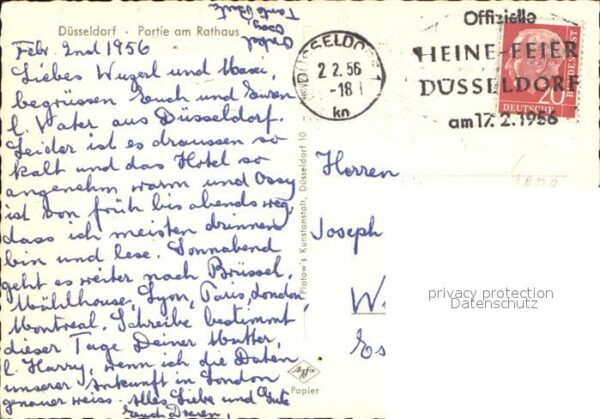 Düsseldorf · Partie am Rathaus
Febr. 2nd 1956
Liebes Wuzerl und Masei,
begrüssen Euch und Euren
l. Vater aus Düsseldorf.
Leider ist es draussen so
kalt und das Hotel so
angenehm warm und Ossy
ist von früh bis abends weg,
dass ich meisten drinnen
bin und lese. Sonnabend
geht es weiter nach Brüssel,
Mühlhouse, Lyon, Paris, London,
Montreal. Schreibe bestimmt
dieser Tage Deiner Mutter,
l. Harry, wenn ich die Daten
unserer Ankunft in London
genauer weiss. Alles Liebe und Gute
Euch Dreien,
Onkel
Ossy
Tante
DÜSSELDORF
2.2.56
-18
kn
Offizielle
HEINE-FEIER
DÜSSELDORF
am 17.2.1956
20
DEUTSCHE
BUNDESPOST
Platow's Kunstanstalt, Düsseldorf 10
Herren
Joseph
W
Es
privacy protection
Datenschutz
Agfa
Papier